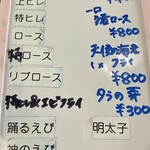 上ヒレ
特ヒレ
ロース
ロース
リブロース
エビフライ
踊るえび
神のえび
一口
ロース
¥800
天使海老
フライ
¥800
タラの芽
¥300
明太子